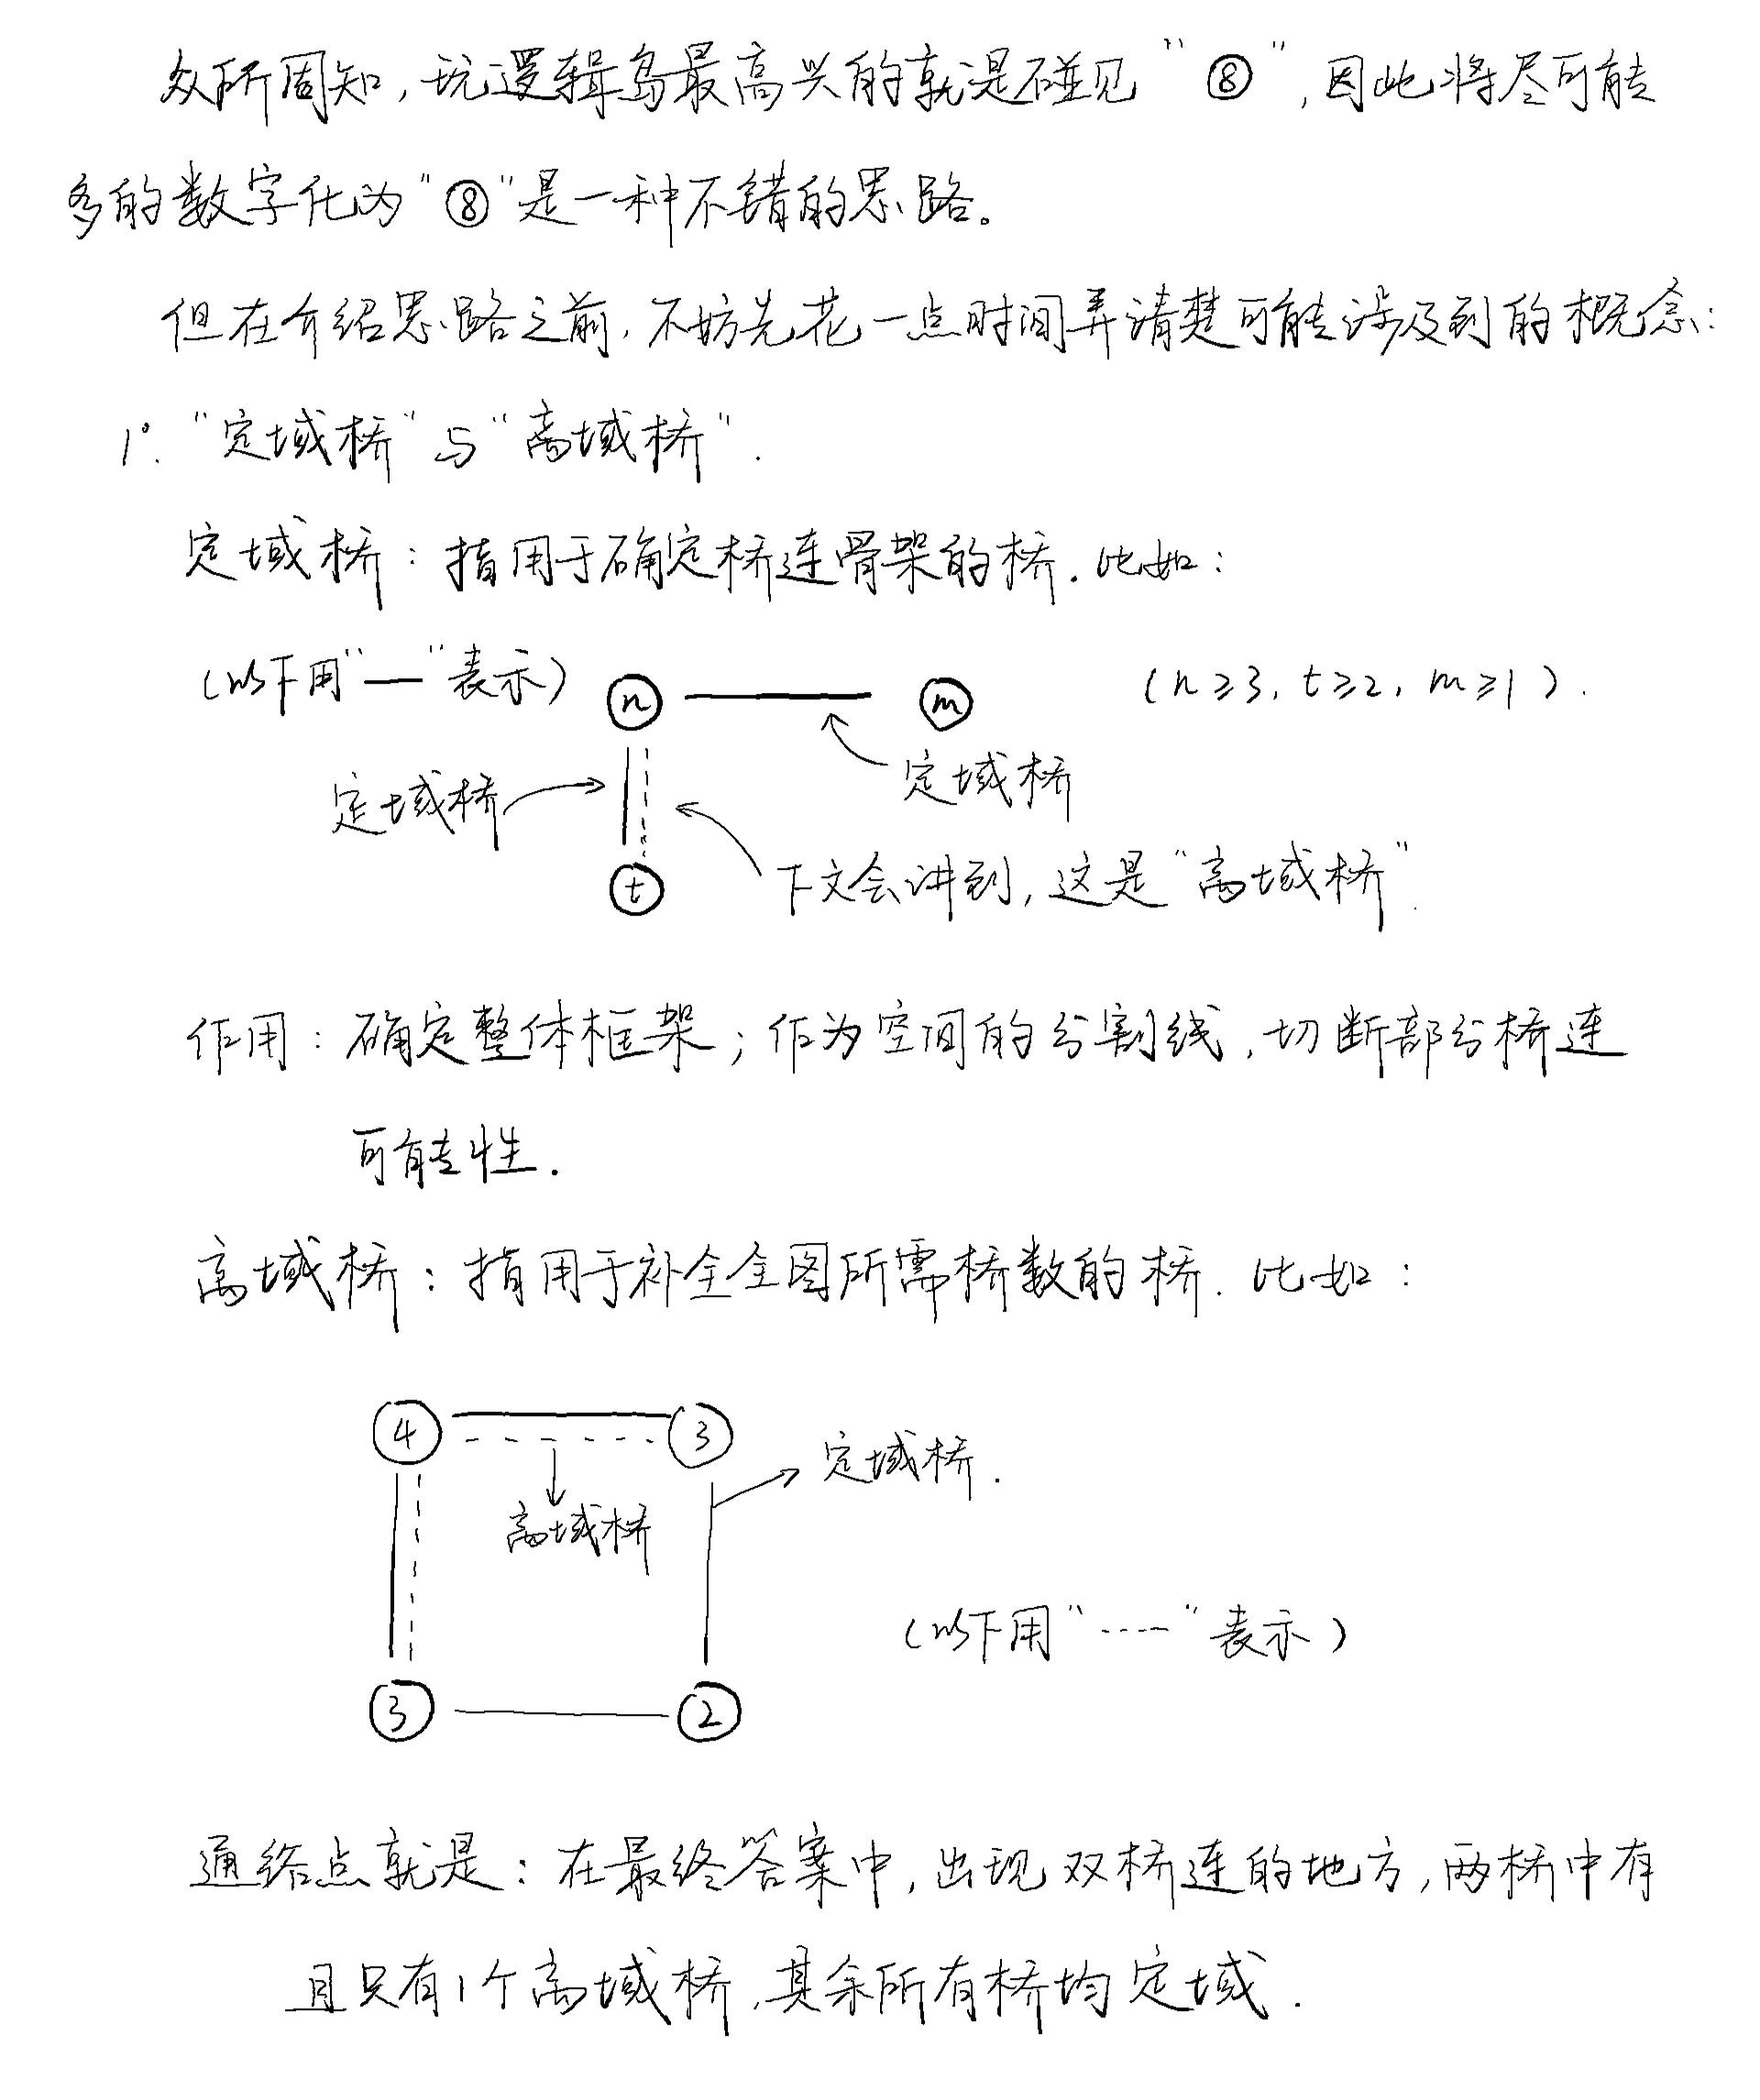 众所周知,玩逻辑岛最高兴的就是碰见“⑧”,因此将尽可能
多的数字化为“⑧”是一种不错的思路。
但在介绍思路之前,不妨先花一点时间弄清楚可能涉及到的概念:
1°. “定域桥”与“离域桥”.
定域桥:指用于确定桥连骨架的桥.比如:
(以下用“—”表示)
n
m
(n≥3, t≥2, m≥1).
定域桥
定域桥
t
下文会讲到,这是“离域桥”.
作用:确定整体框架;作为空间的分割线,切断部分桥连
可能性.
离域桥:指用于补全全图所需桥数的桥.比如:
④
③
定域桥.
离域桥
(以下用“----”表示)
③
②
通俗点就是:在最终答案中,出现双桥连的地方,两桥中有
且只有1个离域桥,其余所有桥均定域.